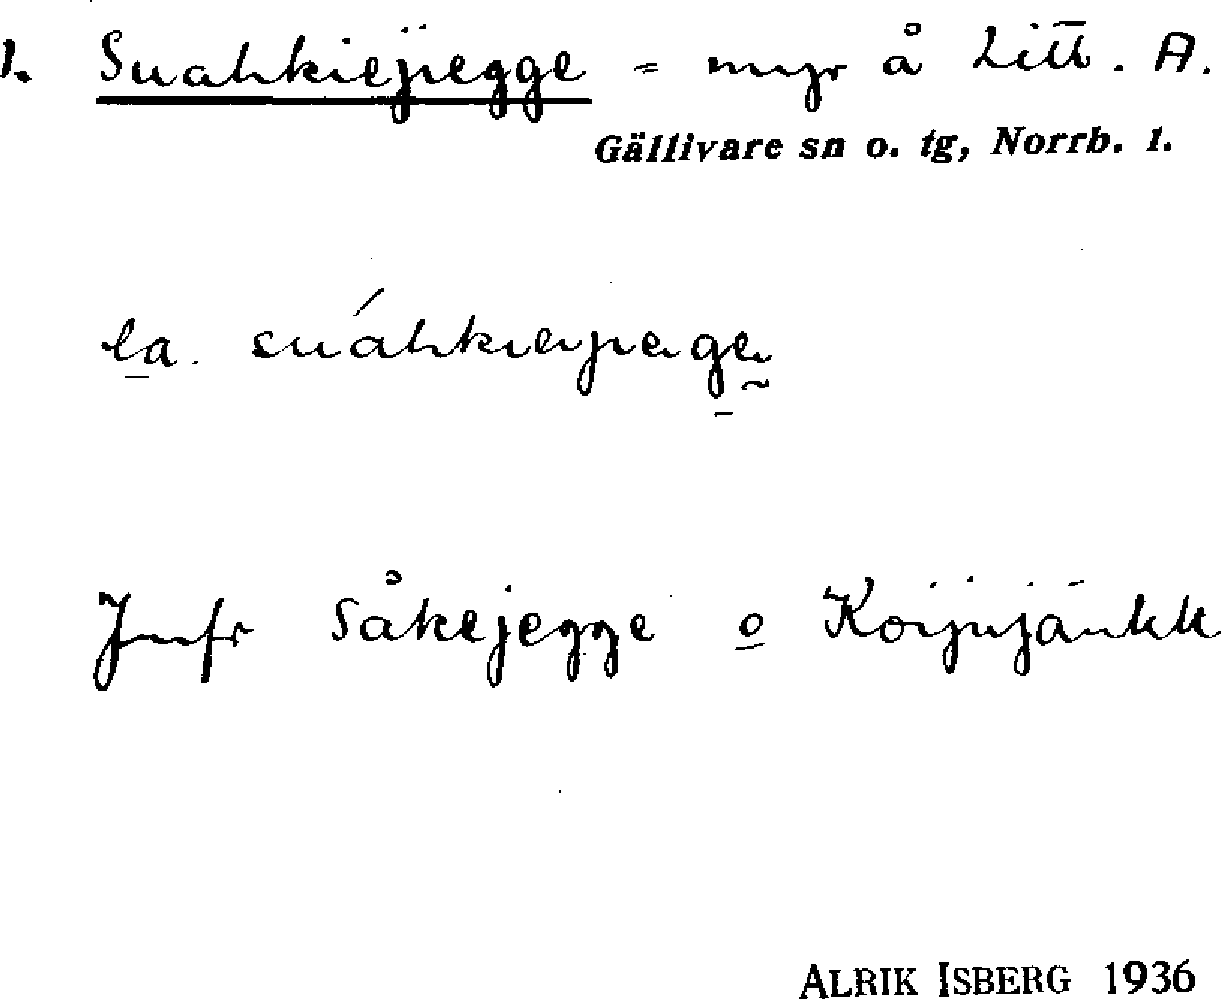 1. Suahkiejiegge = myr å Litt. A.
Gällivare sn o. tg, Norrb. 1.
la.
Jmfr Såkejegge o
ALRIK ISBERG 1936